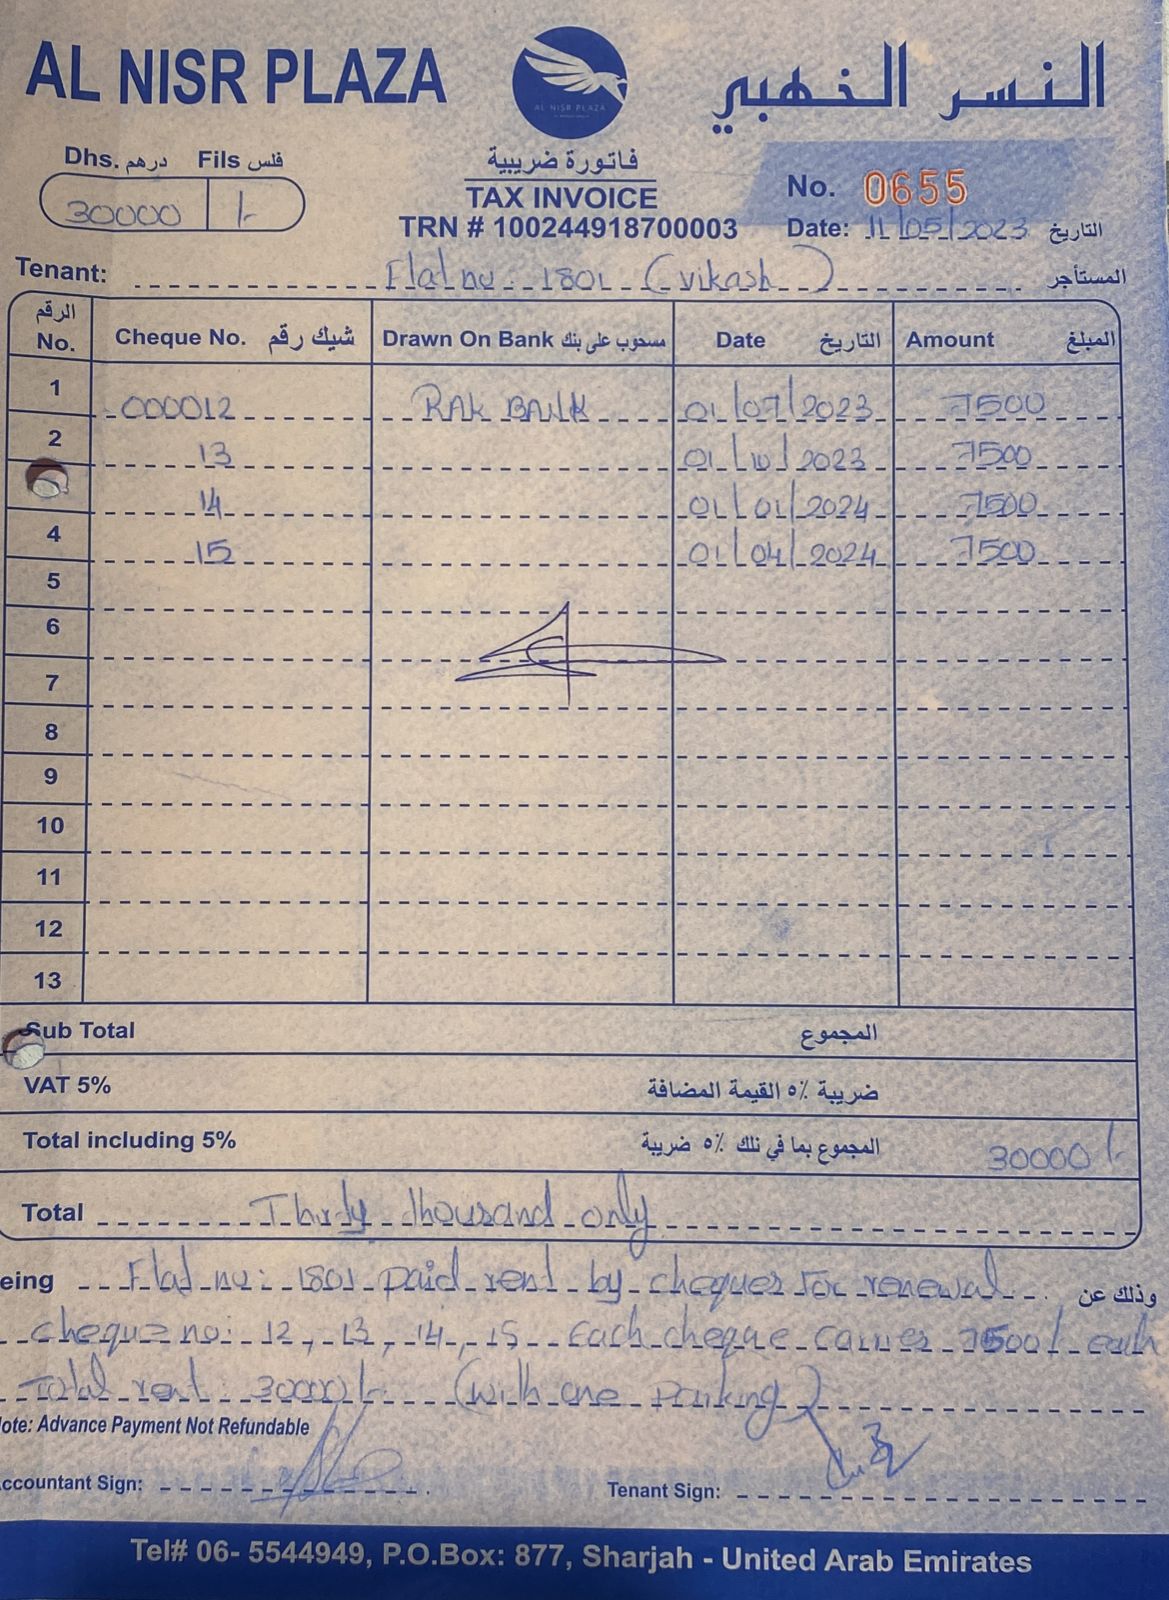 AL NISR PLAZA
AL NISR PLAZA
النسر الذهبي
Dhs. درهم Fils فلس
30000 /-
فاتورة ضريبية
TAX INVOICE
TRN # 100244918700003
No. 0655
Date: 11/05/2023 التاريخ
Tenant: Flat no: 1801 (vikash) المستأجر
الرقم
No. Cheque No. شيك رقم Drawn On Bank مسحوب على بنك Date التاريخ Amount المبلغ
1 000012 RAK BANK 01/07/2023 7500
2 13 01/10/2023 7500
14 01/01/2024 7500
4 15 01/04/2024 7500
5
6
7
8
9
10
11
12
13
Sub Total المجموع
VAT 5% ضريبة ٥٪ القيمة المضافة
Total including 5% المجموع بما في نلك ٥٪ ضريبة 30000/-
Total Thirty thousand only
eing Flat no: 1801 paid rent by cheques for renewal وذلك عن
cheque no: 12, 13, 14, 15 Each cheque carries 7500/- each
Total rent: 30000/- (with one parking)
ote: Advance Payment Not Refundable
ccountant Sign: Tenant Sign:
Tel# 06- 5544949, P.O.Box: 877, Sharjah - United Arab Emirates